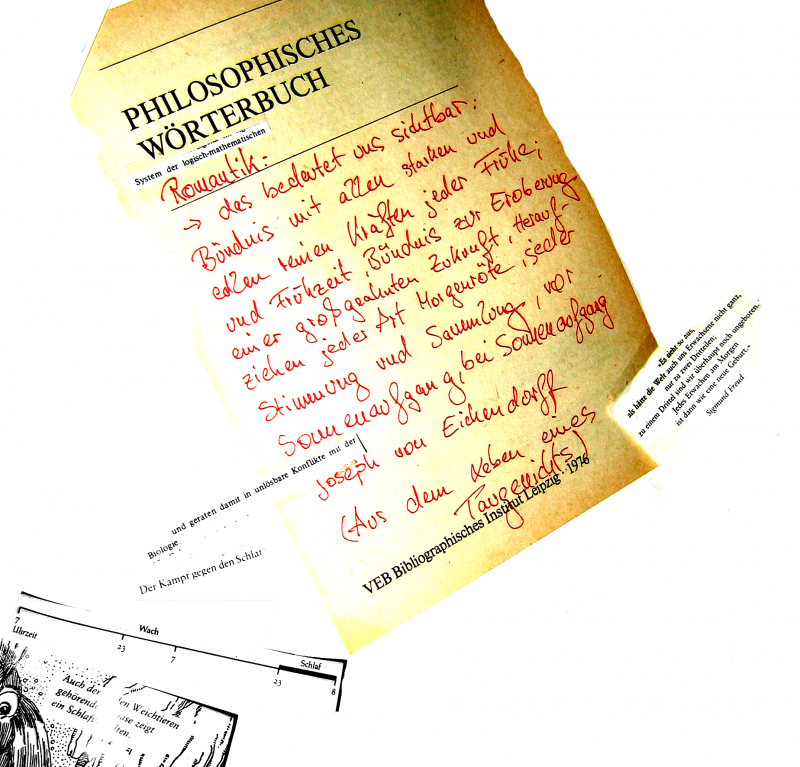 PHILOSOPHISCHES
WÖRTERBUCH
System der logisch-mathematischen
Romantik:
→ das bedeutet uns sichtbar:
Bündnis mit allen starken und
edlen reinen Kräften jeder Frühe;
und Frühzeit, Bündnis zur Eroberung
einer großgeahnten Zukunft, Herauf-
ziehen jeder Art Morgenröte, jeder
Stimmung und Sammlung, vor
Sonnenaufgang, bei Sonnenaufgang
Joseph von Eichendorff
(Aus dem Leben eines
Taugenichts)
VEB Bibliographisches Institut Leipzig · 1976
»Es sieht so aus,
als hätte die Welt auch uns Erwachsene nicht ganz,
nur zu zwei Dritteilen;
zu einem Drittel sind wir überhaupt noch ungeboren.
Jedes Erwachen am Morgen
ist dann wie eine neue Geburt.«
Sigmund Freud
und geraten damit in unlösbare Konflikte mit der
Biologie.
Der Kampf gegen den Schlaf
7
Uhrzeit
Wach
23
7
Schlaf
23
8
Auch der en Weichtieren
gehörende
ein Schlaf ase zeigt
lten.